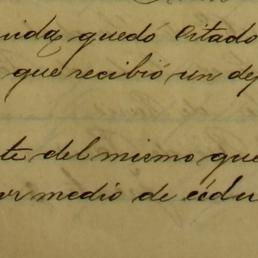 vida, quedó citado
que recibió un de
te del mismo que
or medio de cédu